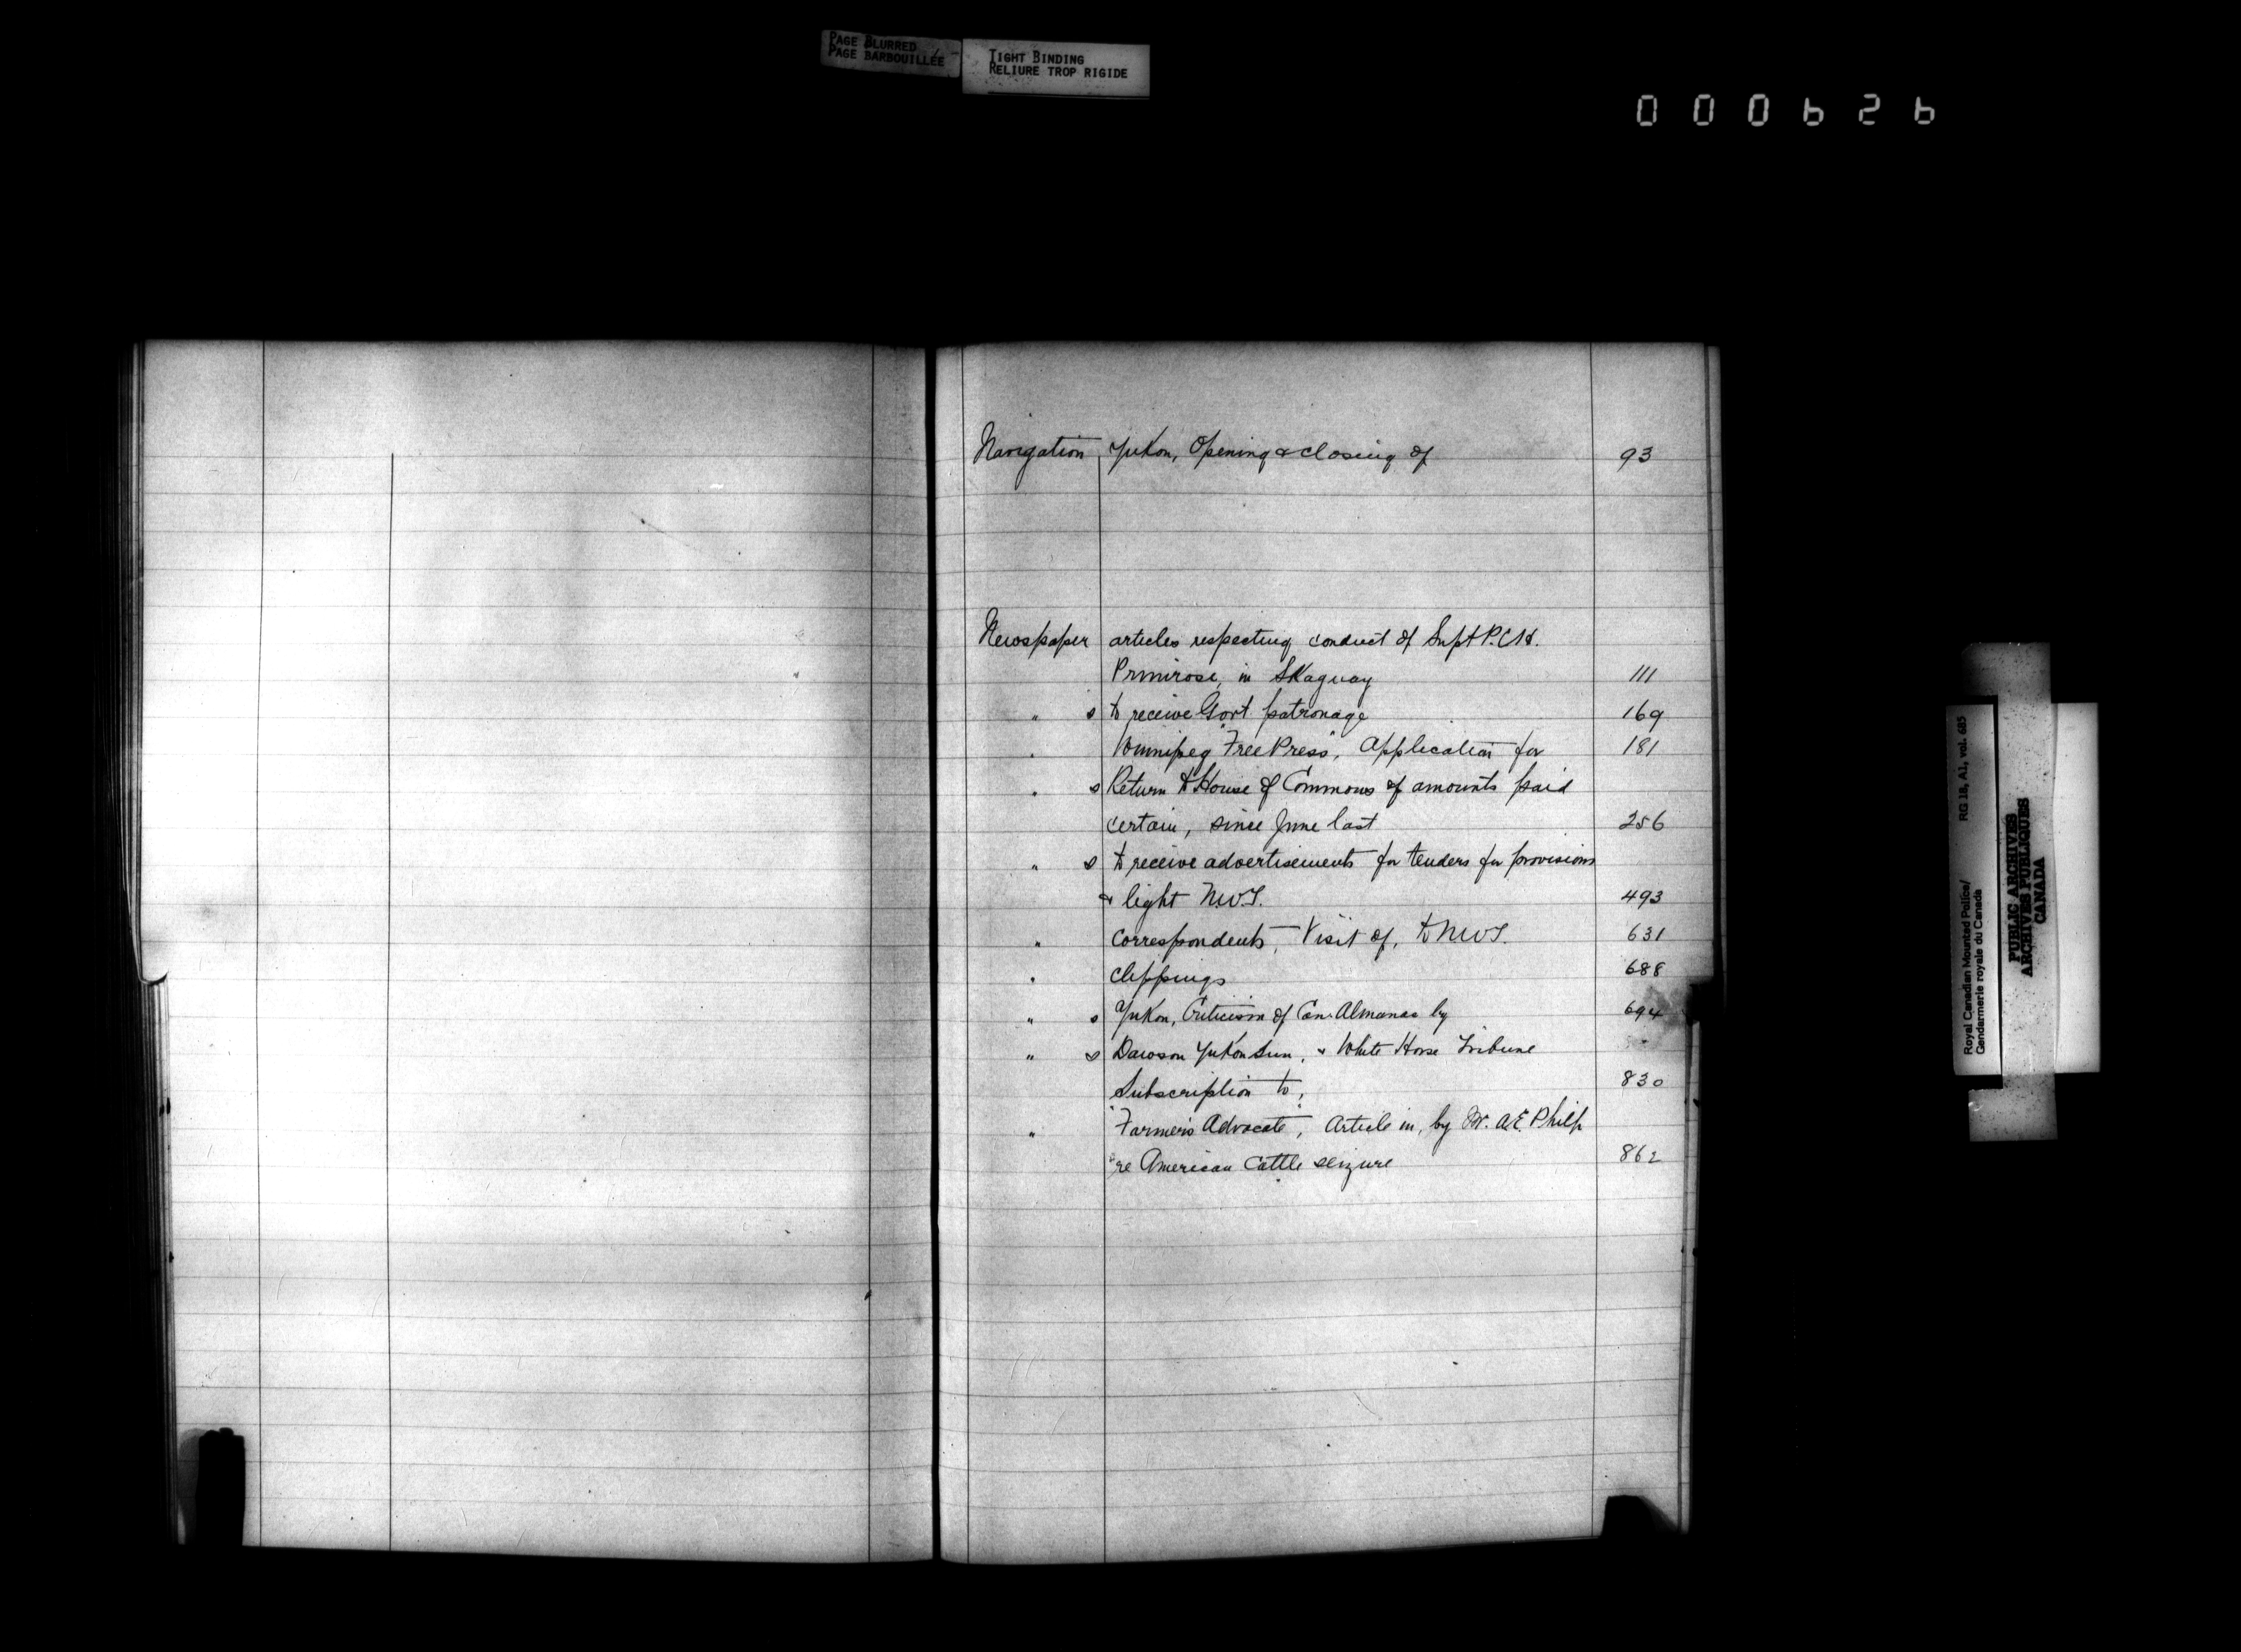 PAGE BLURRED
PAGE BARBOUILLÉE
TIGHT BINDING
RELIURE TROP RIGIDE
000626
Navigation Yukon, Opening & closing of 93
Newspaper articles respecting conduct of Supt P.C.H.
Primrose, in Skaguay 111
" s to receive Govt patronage 169
" Winnipeg "Free Press", Application for 181
" s Return to House of Commons of amounts paid
certain, since June last 256
" s to receive advertisements for tenders for provisions
& light N.W.T. 493
" correspondents, Visit of, to N.W.T. 631
" clippings 688
" s Yukon, Criticism of Can. Almanac by 694
" s Dawson Yukon Sun, & White Horse Tribune
Subscription to, 830
" "Farmer's Advocate", Article in, by Mr. A.E. Philp
re American Cattle seizure 862
Royal Canadian Mounted Police/ RG 18, A1, vol. 685
Gendarmerie royale du Canada
PUBLIC ARCHIVES
ARCHIVES PUBLIQUES
CANADA